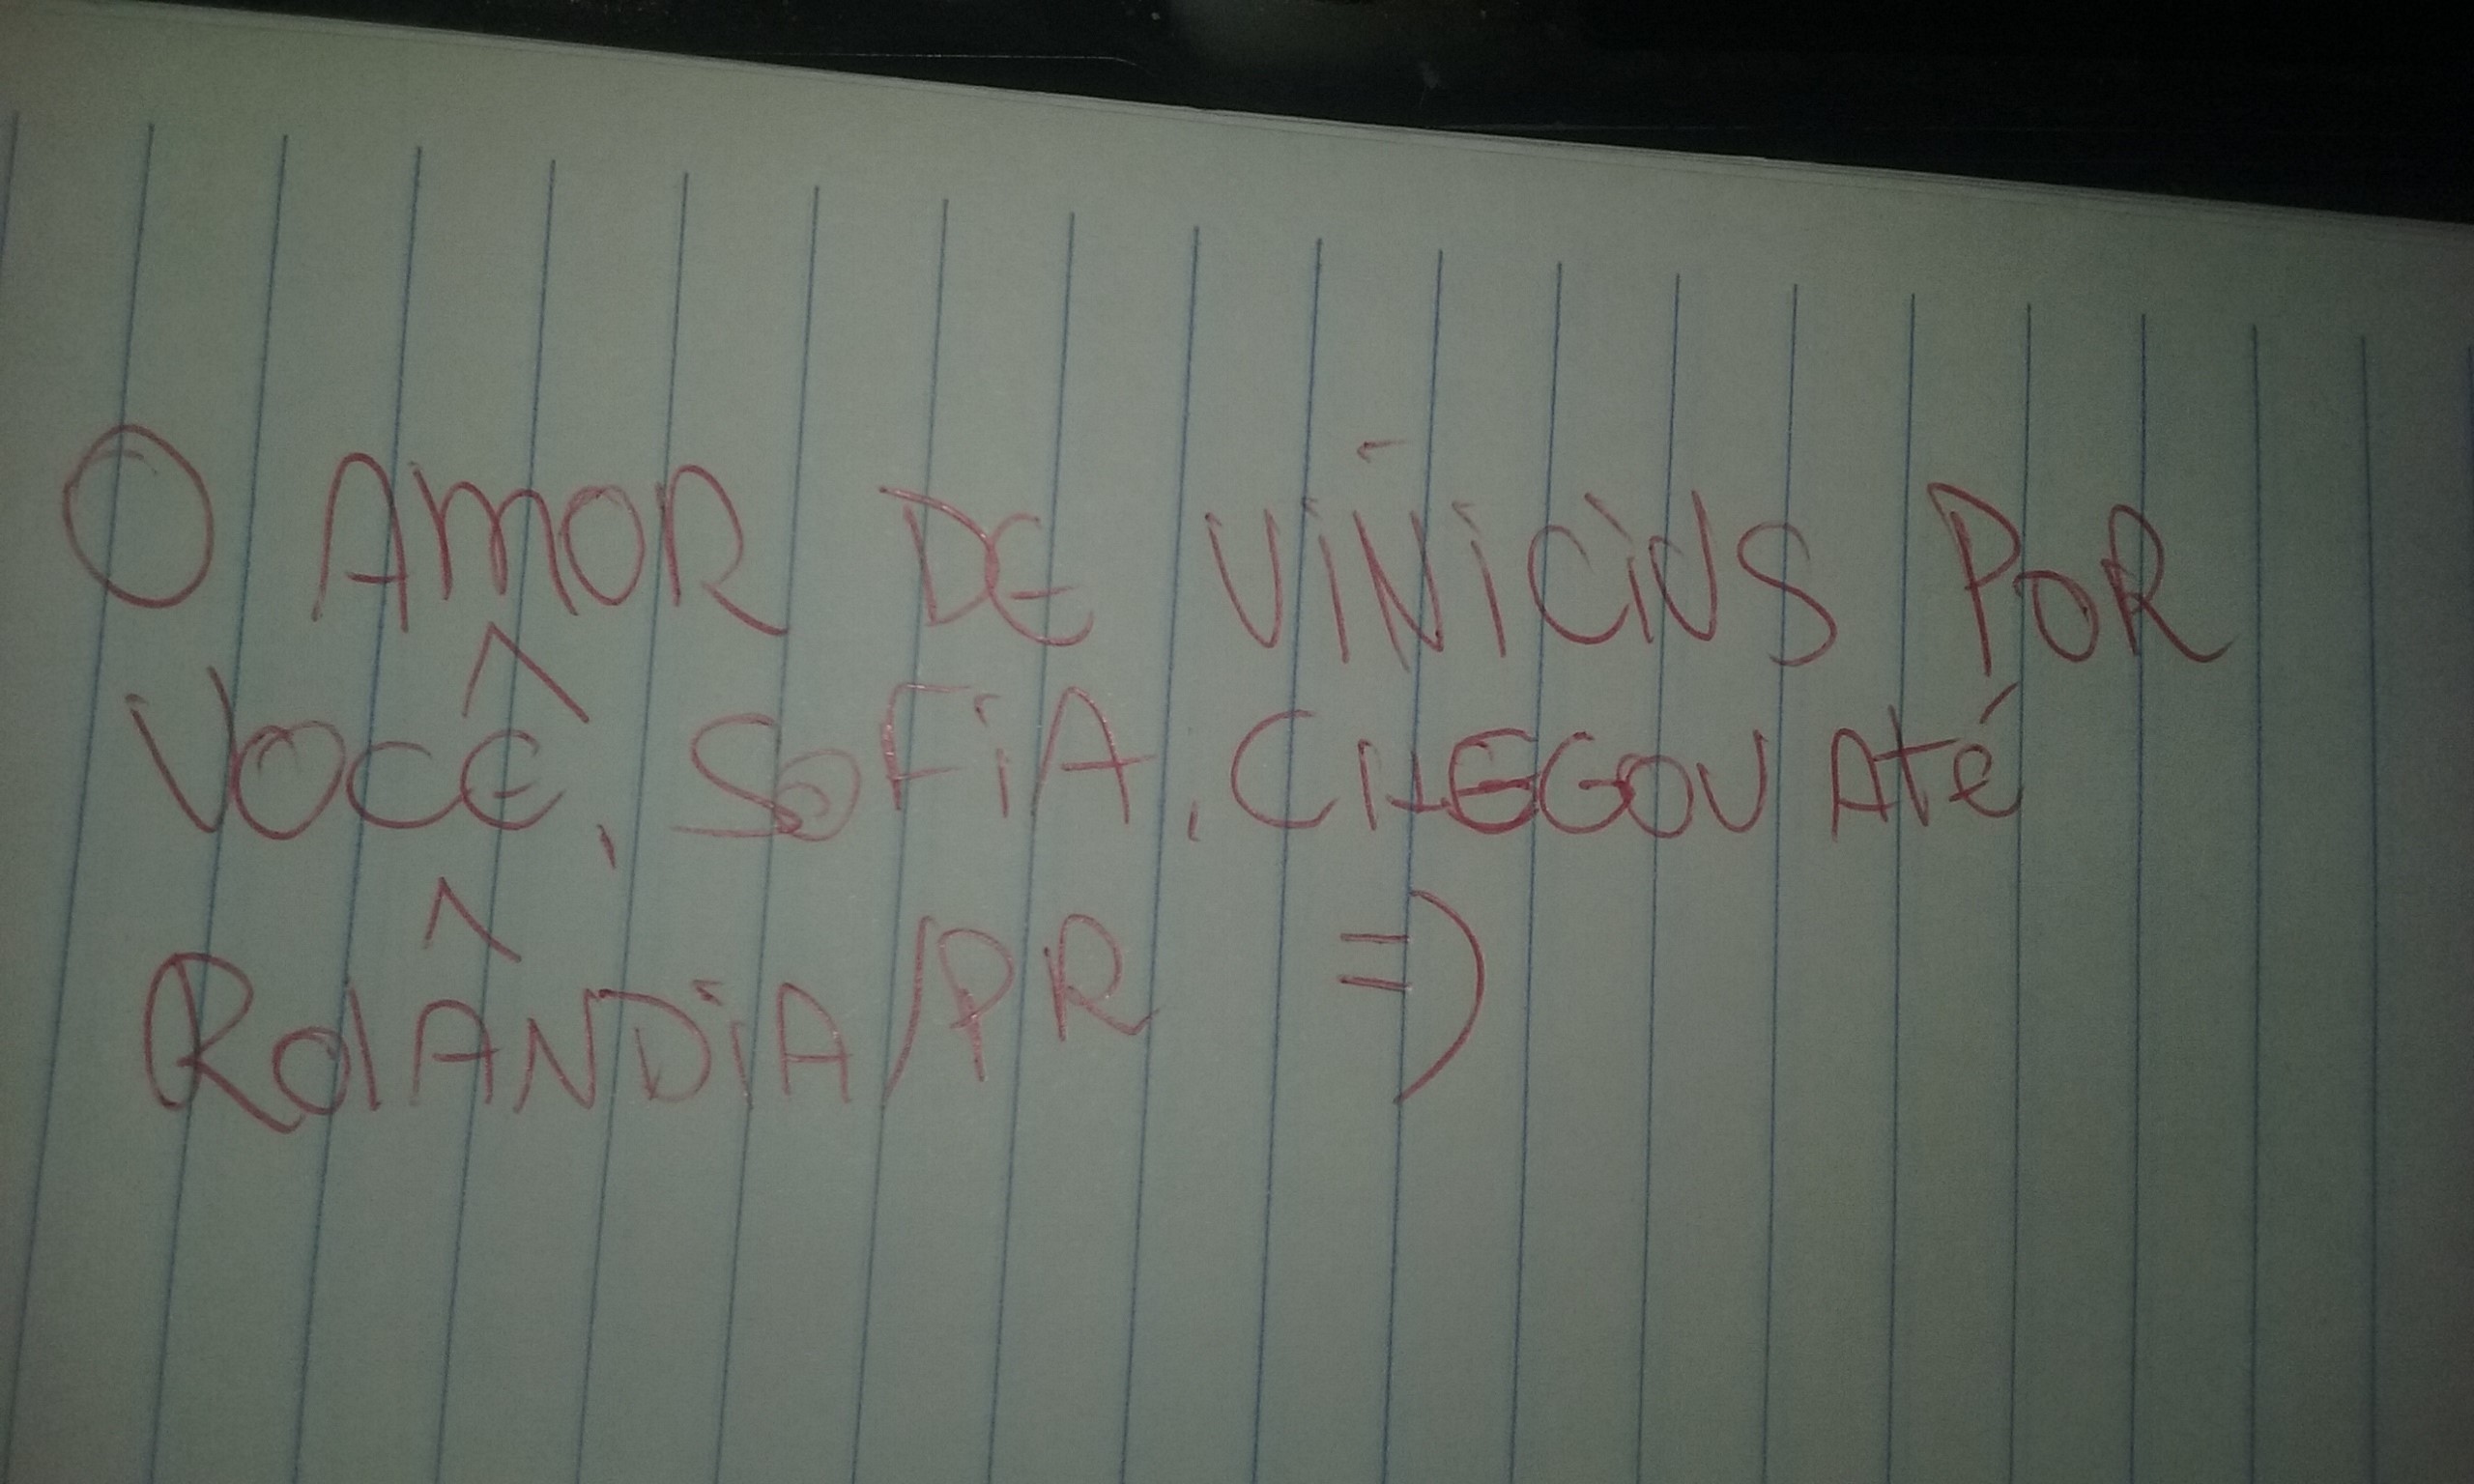 O AMOR DE VINICIUS POR
VOCÊ, SOFIA, CHEGOU ATÉ
ROLÂNDIA/PR =)